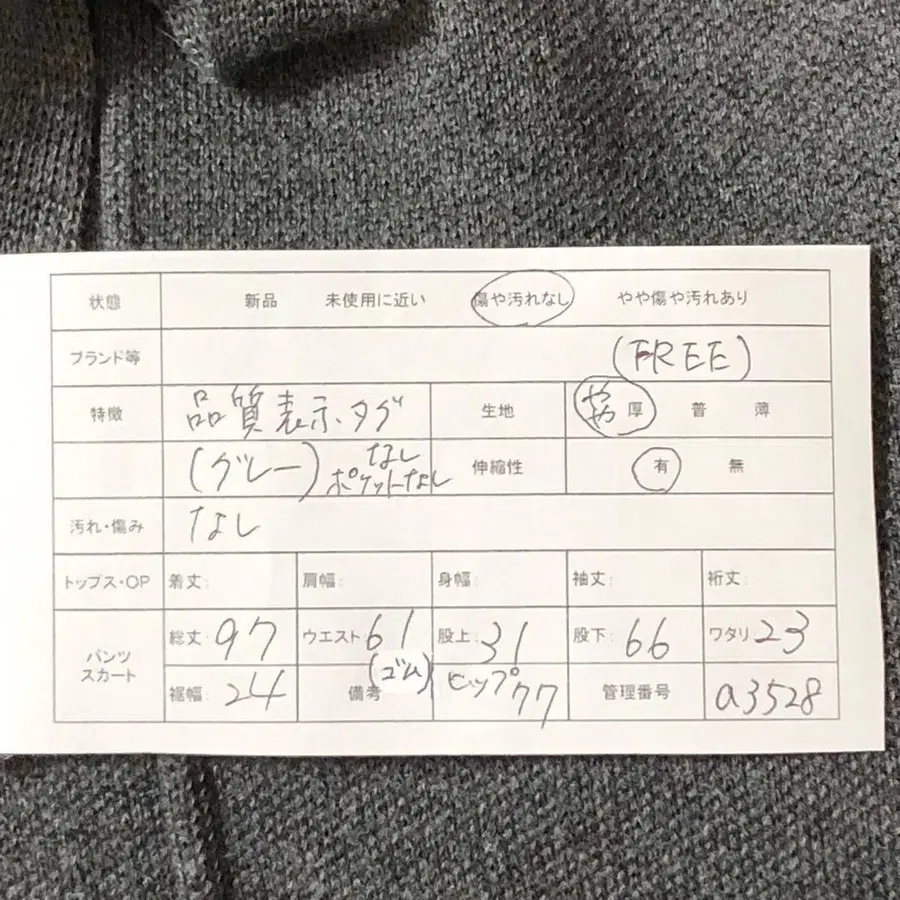 状態 新品 未使用に近い 傷や汚れなし やや傷や汚れあり
ブランド等 (FREE)
特徴 品質表示タグ 生地 やや 厚 普 薄
(グレー) なし ポケットなし 伸縮性 有 無
汚れ・傷み なし
トップス・OP 着丈: 肩幅: 身幅: 袖丈: 裄丈:
パンツ スカート 総丈: 97 ウエスト: 61 (ゴム) 股上: 31 股下: 66 ワタリ: 23
裾幅: 24 備考 ヒップ77 管理番号 a3528